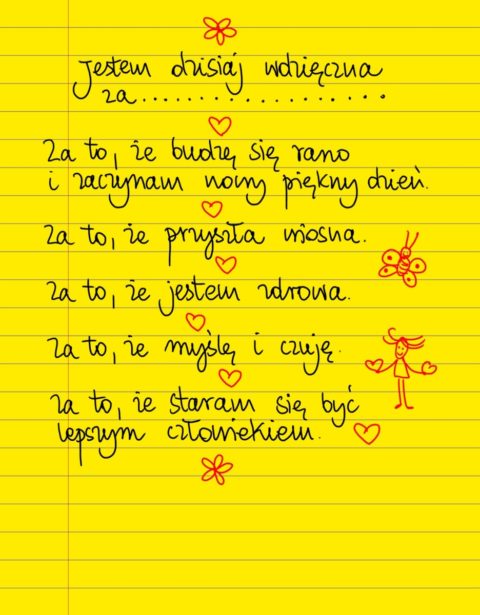 Jestem dzisiaj wdzięczna
za..................
Za to, że budzę się rano
i zaczynam nowy piękny dzień.
Za to, że przyszła wiosna.
Za to, że jestem zdrowa.
Za to, że myślę i czuję.
Za to, że staram się być
lepszym człowiekiem.